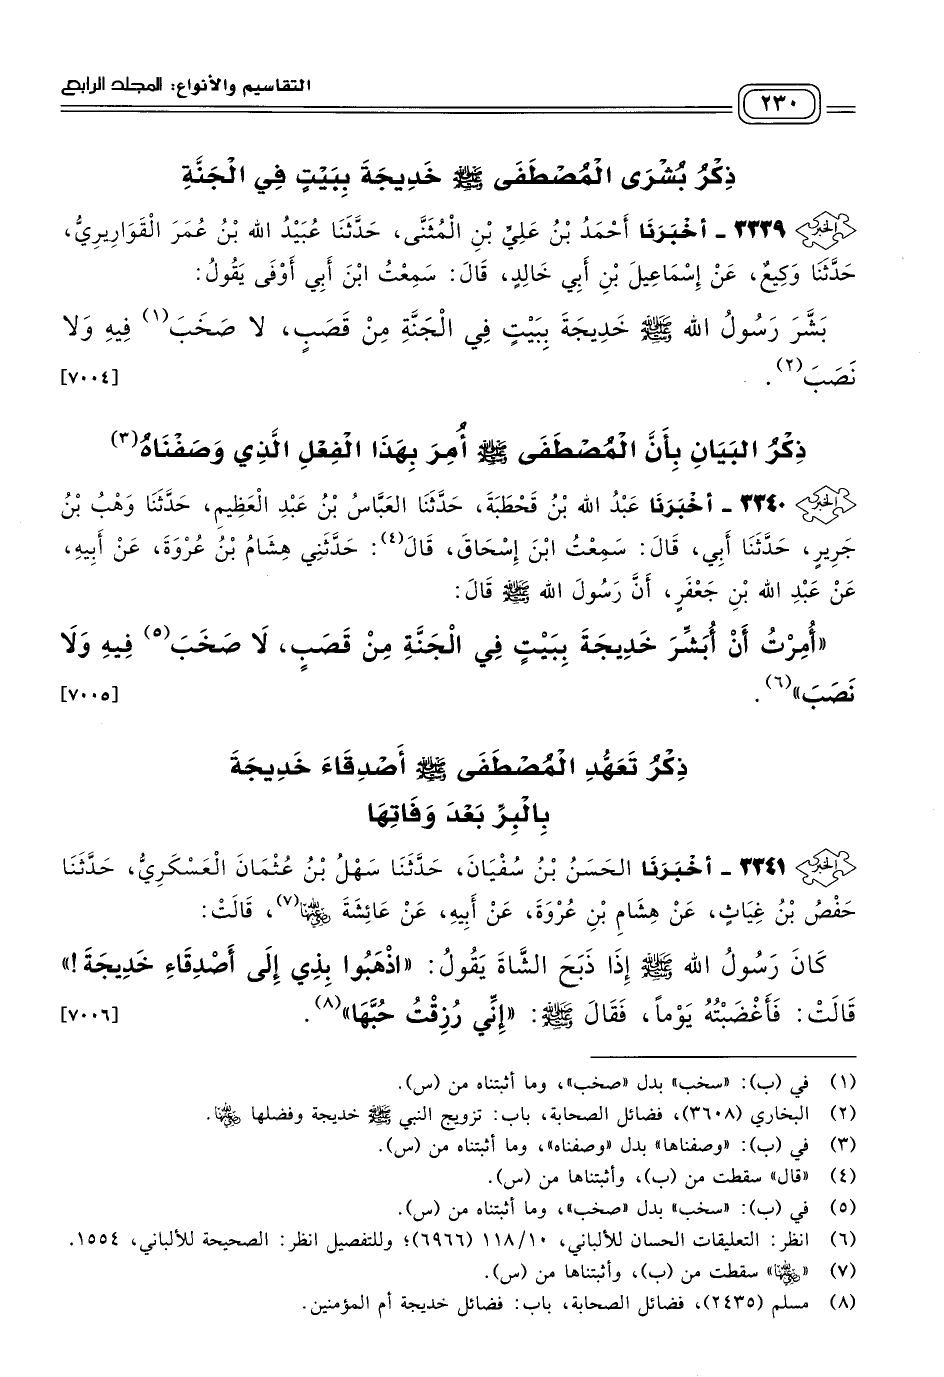 التقاسيم والأنواع: المجلد الرابع
٢٣٠
ذِكْرُ بُشْرَى الْمُصْطَفَى ﷺ خَدِيجَةَ بِبَيْتٍ فِي الْجَنَّةِ
٣٣٣٩ - أَخْبَرَنَا أَحْمَدُ بْنُ عَلِيِّ بْنِ الْمُثَنَّى، حَدَّثَنَا عُبَيْدُ الله بْنُ عُمَرَ الْقَوَارِيرِيُّ،
حَدَّثَنَا وَكِيعٌ، عَنْ إِسْمَاعِيلَ بْنِ أَبِي خَالِدٍ، قَالَ: سَمِعْتُ ابْنَ أَبِي أَوْفَى يَقُولُ:
بَشَّرَ رَسُولُ الله ﷺ خَدِيجَةَ بِبَيْتٍ فِي الْجَنَّةِ مِنْ قَصَبٍ، لا صَخَبَ(١) فِيهِ وَلا
نَصَبَ(٢). [٧٠٠٤]
ذِكْرُ البَيَانِ بِأَنَّ الْمُصْطَفَى ﷺ أُمِرَ بِهَذَا الْفِعْلِ الَّذِي وَصَفْنَاهُ(٣)
٣٣٤٠ - أَخْبَرَنَا عَبْدُ الله بْنُ قَحْطَبَةَ، حَدَّثَنَا العَبَّاسُ بْنُ عَبْدِ الْعَظِيمِ، حَدَّثَنَا وَهْبُ بْنُ
جَرِيرٍ، حَدَّثَنَا أَبِي، قَالَ: سَمِعْتُ ابْنَ إِسْحَاقَ، قَالَ(٤): حَدَّثَنِي هِشَامُ بْنُ عُرْوَةَ، عَنْ أَبِيهِ،
عَنْ عَبْدِ الله بْنِ جَعْفَرٍ، أَنَّ رَسُولَ الله ﷺ قَالَ:
«أُمِرْتُ أَنْ أُبَشِّرَ خَدِيجَةَ بِبَيْتٍ فِي الْجَنَّةِ مِنْ قَصَبٍ، لَا صَخَبَ(٥) فِيهِ وَلَا
نَصَبَ»(٦). [٧٠٠٥]
ذِكْرُ تَعَهُّدِ الْمُصْطَفَى ﷺ أَصْدِقَاءَ خَدِيجَةَ
بِالْبِرِّ بَعْدَ وَفَاتِهَا
٣٣٤١ - أَخْبَرَنَا الحَسَنُ بْنُ سُفْيَانَ، حَدَّثَنَا سَهْلُ بْنُ عُثْمَانَ الْعَسْكَرِيُّ، حَدَّثَنَا
حَفْصُ بْنُ غِيَاثٍ، عَنْ هِشَامِ بْنِ عُرْوَةَ، عَنْ أَبِيهِ، عَنْ عَائِشَةَ رضي الله عنها(٧)، قَالَتْ:
كَانَ رَسُولُ الله ﷺ إِذَا ذَبَحَ الشَّاةَ يَقُولُ: «اذْهَبُوا بِذِي إِلَى أَصْدِقَاءِ خَدِيجَةَ!»
قَالَتْ: فَأَغْضَبْتُهُ يَوْماً، فَقَالَ ﷺ: «إِنِّي رُزِقْتُ حُبَّهَا»(٨). [٧٠٠٦]
(١) في (ب): «سخب» بدل «صخب»، وما أثبتناه من (س).
(٢) البخاري (٣٦٠٨)، فضائل الصحابة، باب: تزويج النبي ﷺ خديجة وفضلها رضي الله عنها.
(٣) في (ب): «وصفناها» بدل «وصفناه»، وما أثبتناه من (س).
(٤) «قال» سقطت من (ب)، وأثبتناها من (س).
(٥) في (ب): «سخب» بدل «صخب»، وما أثبتناه من (س).
(٦) انظر: التعليقات الحسان للألباني، ١٠/ ١١٨ (٦٩٦٦)؛ وللتفصيل انظر: الصحيحة للألباني، ١٥٥٤.
(٧) «رضي الله عنها» سقطت من (ب)، وأثبتناها من (س).
(٨) مسلم (٢٤٣٥)، فضائل الصحابة، باب: فضائل خديجة أم المؤمنين.